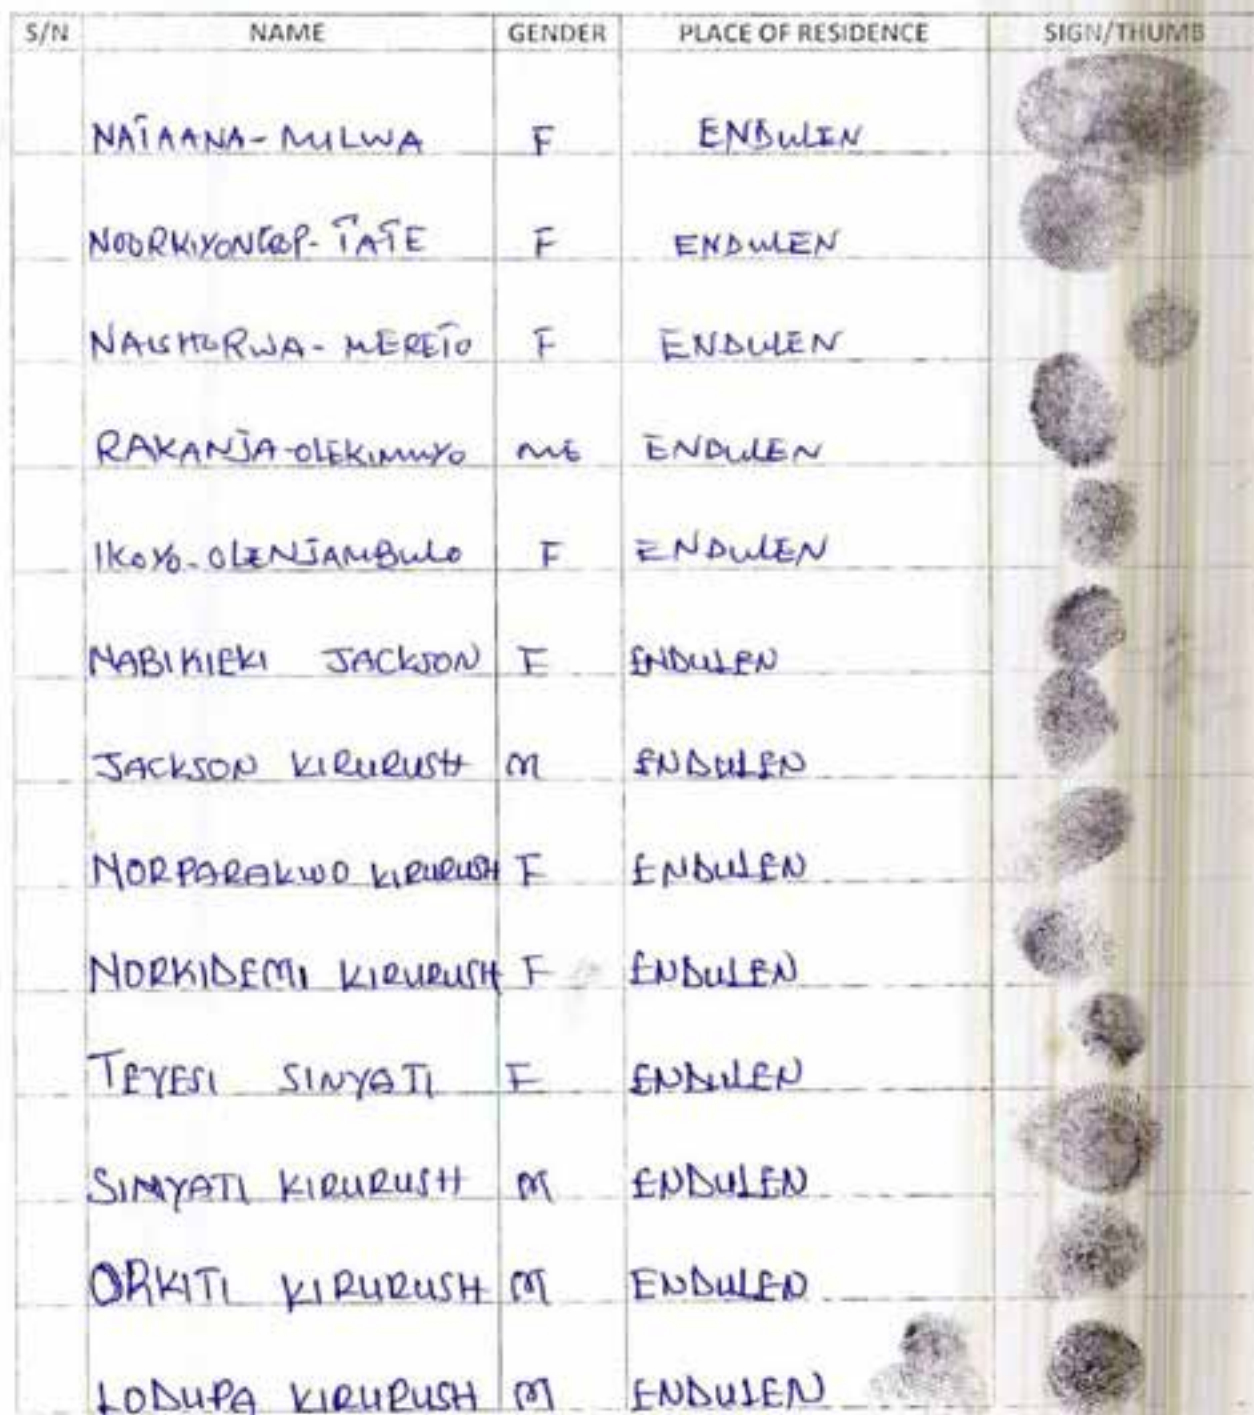 S/N NAME GENDER PLACE OF RESIDENCE SIGN/THUMB
NATAANA-MILWA F ENDULEN
TATE F ENDULEN
NAISHORWA-MERETO F ENDULEN
RAKANJA-OLEKIMUYO ME ENDULEN
IKOYO-OLENJAMBULO F ENDULEN
NABIKIEKI JACKSON F ENDULEN
JACKSON KIRURUSH M ENDULEN
NORPARAKWO KIRURUSH F ENDULEN
NORKIDEMI KIRURUSH F ENDULEN
TEYESI SINYATI F ENDULEN
SINYATI KIRURUSH M ENDULEN
ORKITI KIRURUSH M ENDULEN
LODUPA KIRURUSH M ENDULEN